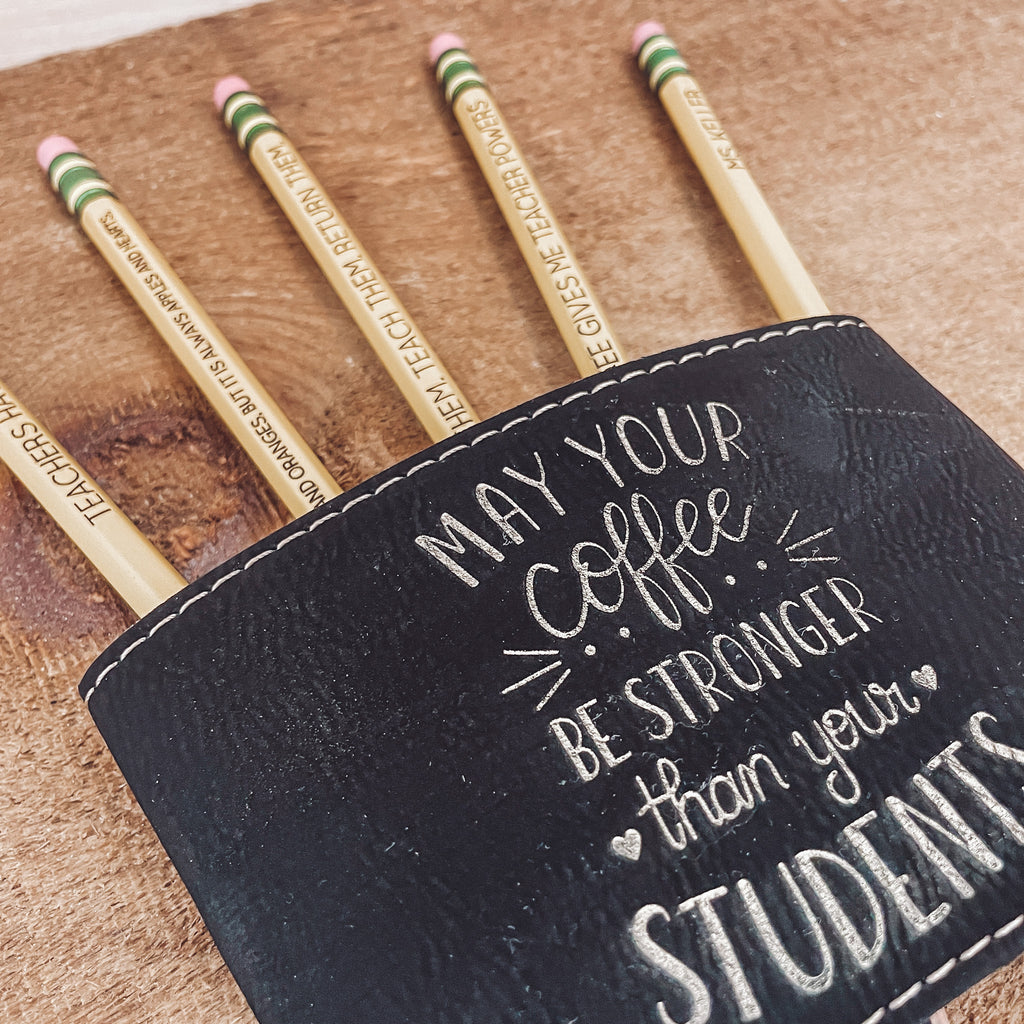 TEACHERS HA
AND ORANGES, BUT IT IS ALWAYS APPLES AND HEARTS.
THEM. TEACH THEM. RETURN THEM
EE GIVES ME TEACHER POWERS
MS. KELLER
MAY YOUR
coffee
BE STRONGER
than your
STUDENTS.